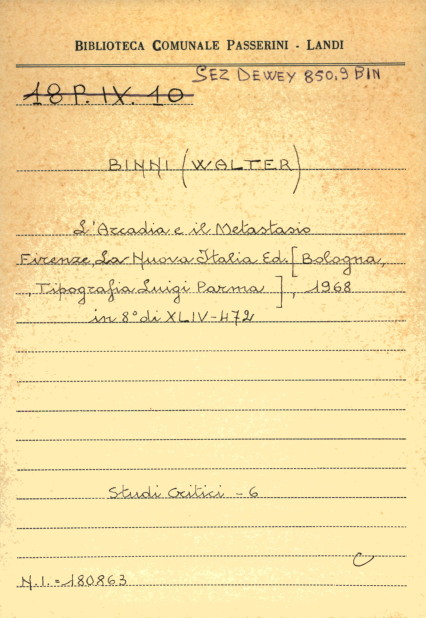 BIBLIOTECA COMUNALE PASSERINI - LANDI
SEZ DEWEY 850,9 BIN
18 P. IX. 10
BINNI (WALTER)
L'Arcadia e il Metastasio
Firenze, La Nuova Italia Ed. [Bologna,
, Tipografia Luigi Parma ] , 1968
in 8° di XLIV-472
Studi Critici - 6
C
N.I. = 180863